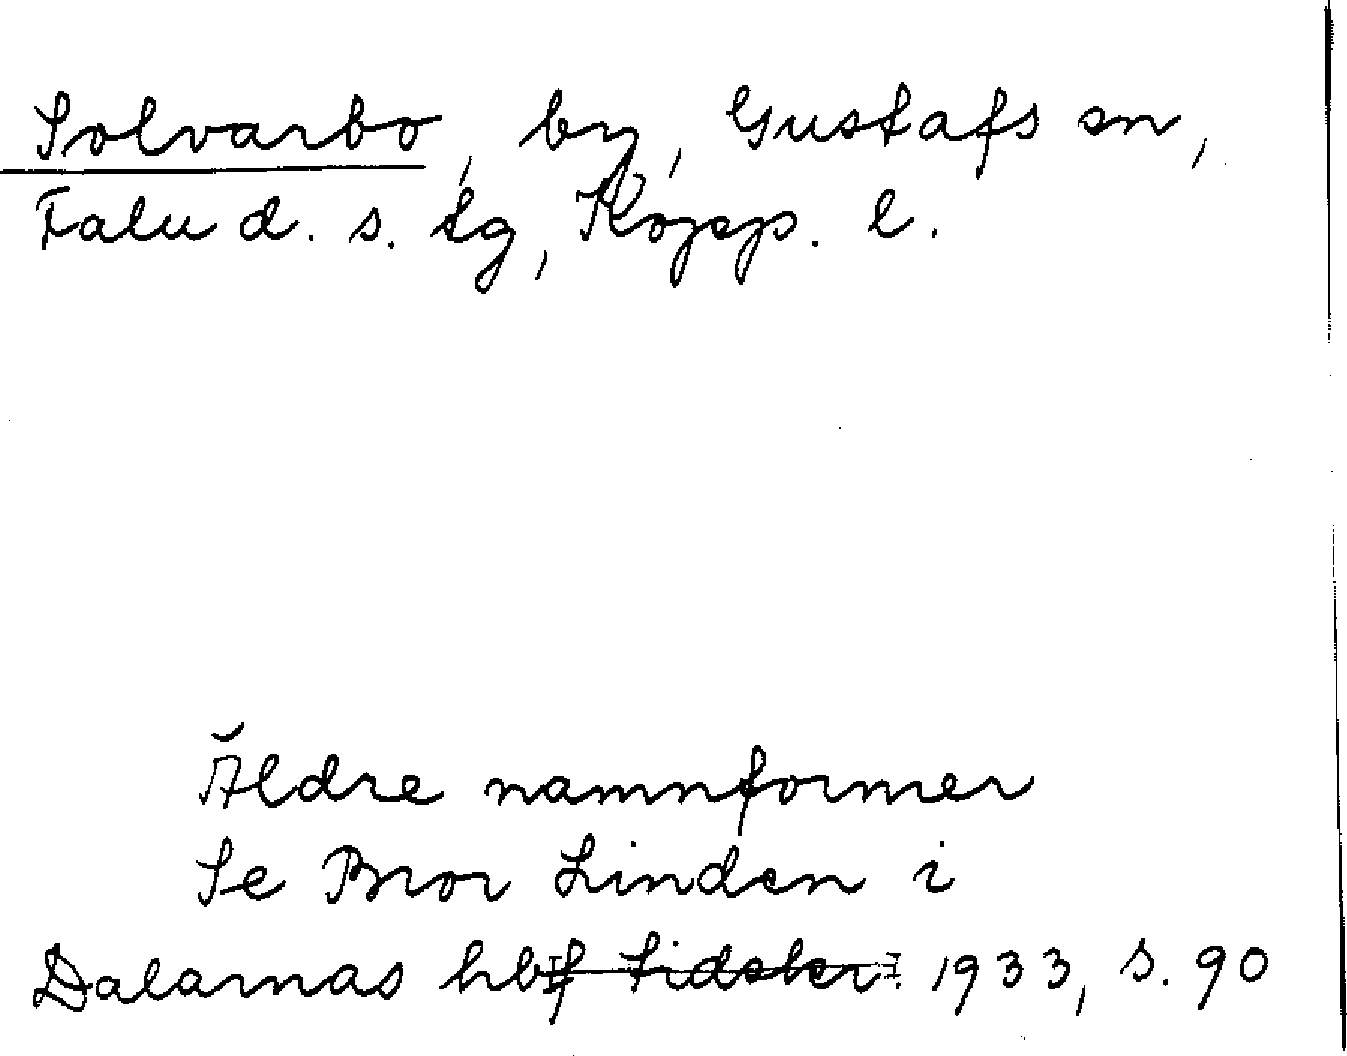 Solvarbo, by, Gustafs sn,
Falu d. s. tg, Kopp. l.
Äldre namnformer
Se Bror Lindén i
Dalarnas hbf tidskr. 1933, s. 90